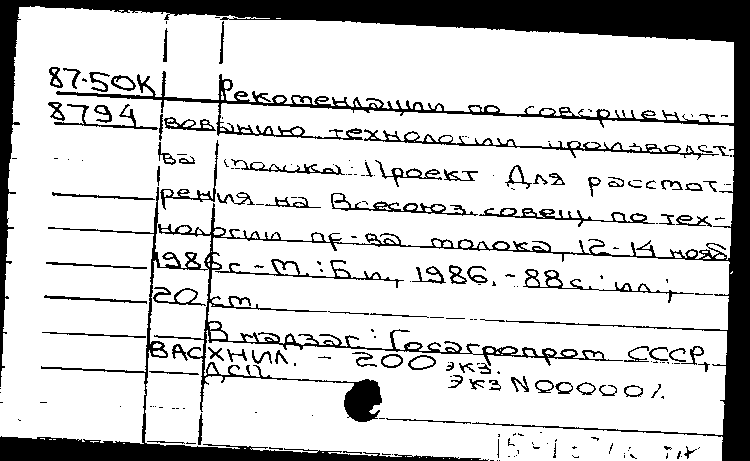 87-50К Рекомендации по совершенст-
8794 вованию технологии производст-
ва молока: Проект Для рассмот-
рения на Всесоюз. совещ. по тех-
нологии пр-ва молока, 12-14 нояб
1986г. - М.: Б.и., 1986. - 88с.: ил.;
20 см.
В надзаг: Госагропром СССР,
ВАСХНИЛ. - 200 экз.
ДСП. экз N000001.